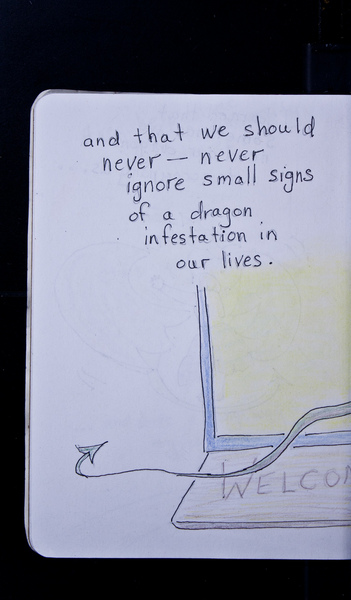 and that we should
never — never
ignore small signs
of a dragon
infestation in
our lives.
WELCOM